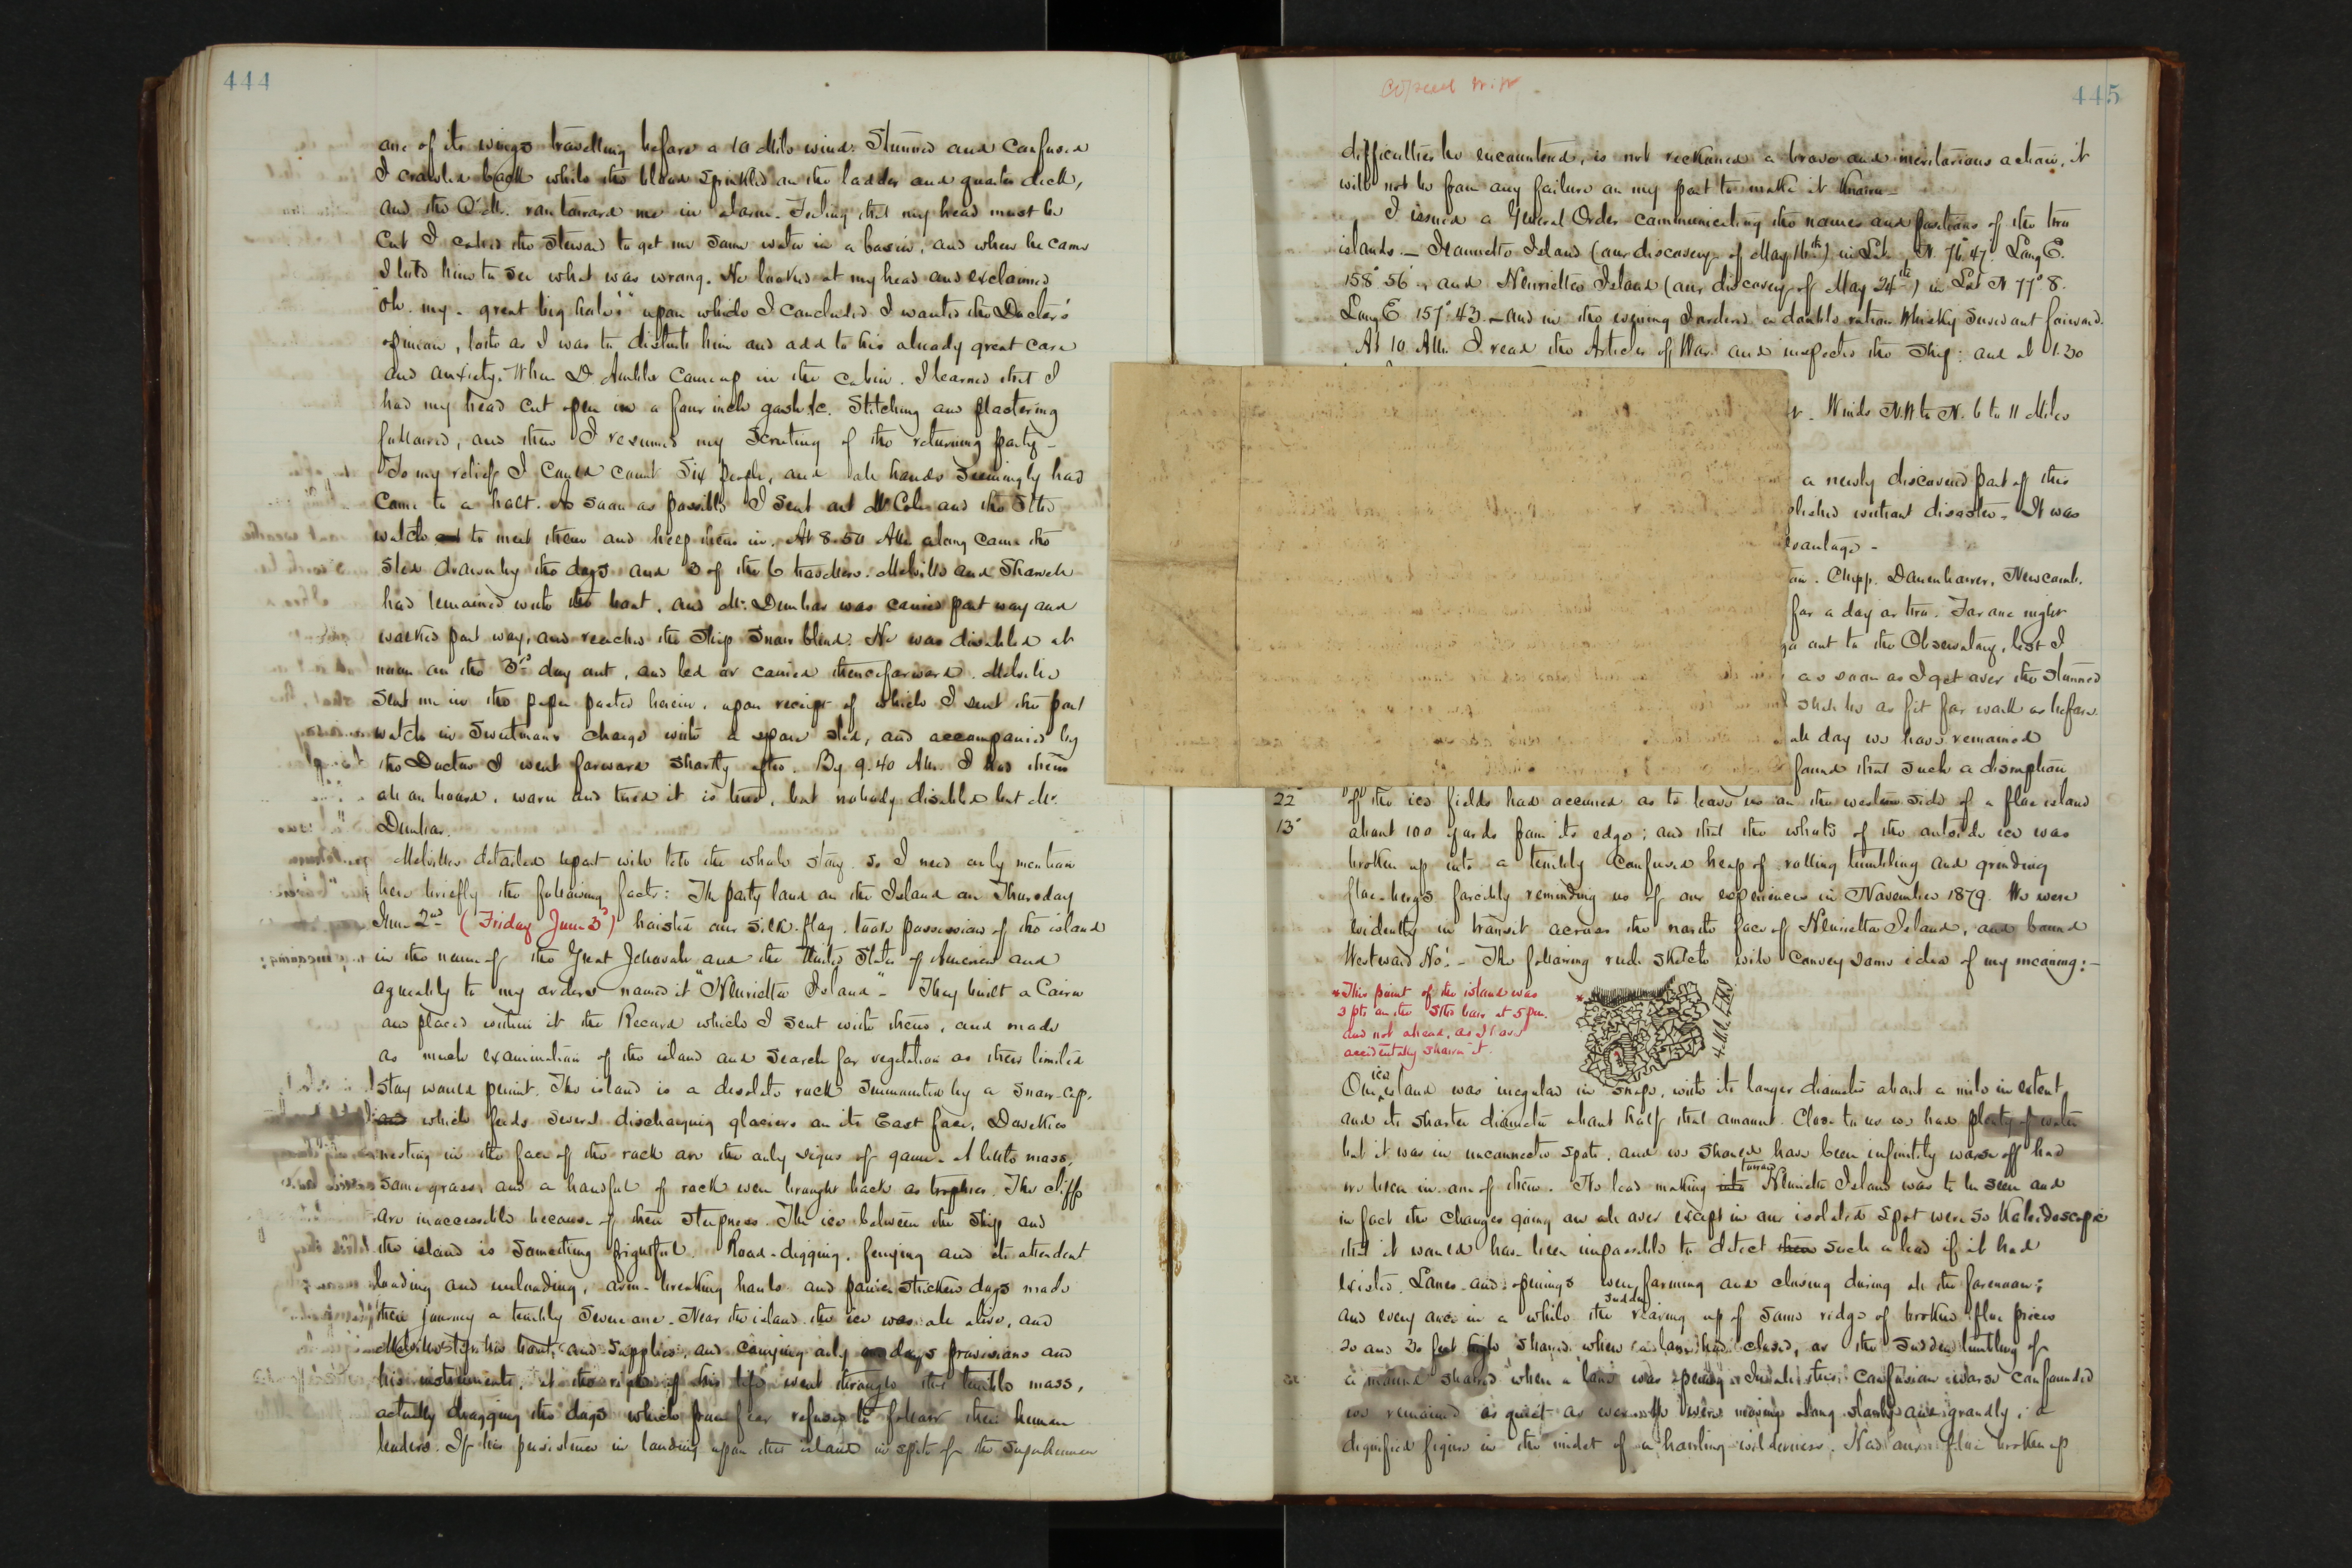 444
one of its wings travelling before a 10 Mile wind. Stunned and Confused
I crawled back while the blood sprinkled on the ladder and quarter deck,
and the Q.M. ran toward me in alarm. Feeling that my head must be
Cut I called the Steward to get me some water in a basin, and when he came
I told him to see what was wrong. He looked at my head and exclaimed
"Oh. my. great big hole!" upon which I concluded I wanted the Doctor's
opinion, loth as I was to disturb him and add to his already great care
and anxiety. When Dr Ambler came up in the cabin. I learned that I
had my head cut open in a four inch gash &c. Stitching and plastering
followed, and then I resumed my Scrutiny of the returning party -
To my relief I could count Six people, and all hands Seemingly had
Come to a halt. As soon as possible I sent out Mr Cole and the Stbd
watch to meet them and help them in. At 8.50 AM along came the
Sled drawn by the dogs and 3 of the 6 travelers. Melville and Sharvell
had remained with the boat, and Mr. Dunbar was carried part way and
walked part way, and reached the Ship Snow blind. He was disabled at
noon on the 3rd day out, and led or carried thenceforward. Melville
Sent me in the paper pasted herein, upon receipt of which I sent the port
watch in Sweetman's charge with a spare sled, and accompanied by
the Doctor I went forward shortly after. By 9.40 AM. I had them
all on board, worn and tired it is true, but nobody disabled but Mr.
Dunbar.
Melville's detailed report will tell the whole story. So I need only mention
here briefly the following facts: The party land on the Island on Thursday
June 2nd (Friday June 3d) hoisted our silk flag. took possession of the island
in the name of the Great Jehovah and the United States of America and
agreeably to my orders named it "Henrietta Island" - They built a Cairn
and placed within it the Record which I sent with them, and made
as much examination of the island and search for vegetation as their limited
stay would permit. The island is a desolate rock surmounted by a snow-cap,
which feeds several discharging glaciers on its East face, Dovekies
nesting in the face of the rock are the only signs of game. A little moss,
some grass, and a handful of rock were brought back as trophies. The cliffs
are inaccessible because of their steepness. The ice between the Ship and
the island is something frightful. Road-digging, ferrying and its attendant
loading and unloading, arm-breaking hauls and panic stricken dogs made
their journey a terribly severe one. Near the island the ice was all alive, and
Melville left his boat, and supplies, and carrying only a days provisions and
his instruments, at the risk of his life went through the terrible mass,
actually dragging the dogs which from fear refused to follow their human
leaders. If his persistence in landing upon this island in spite of the superhuman
445
Copied
difficulties he encountered, is not reckoned a brave and meritorious action, it
will not be from any failure on my part to make it Known -
I issued a General Order communicating the names and positions of the two
islands - Jeannette Island (our discovery of May 16th) in Lat. N. 76° 47' Long E.
158° 56' and Henrietta Island (our discovery of May 24th) in Lat N 77° 8'.
Long E 157° 43' - and in the evening I ordered a double ration Whisky served out forward.
At 10 AM. I read the Articles of War and inspected the Ship: and at 1.30
Winds N.W to N. 6 to 11 Miles
a newly discovered part of this
plished without disaster. It was
vantage -
Chipp. Danenhower, Newcomb.
for a day or two. For one night
go out to the Observatory, lest I
as soon as I got over the Stunned
shall be as fit for work as before.
all day we have remained
found that such a disruption
22° of the ice fields had occurred as to leave us on the western side of a floe island
13° about 100 yards from its edge; and that the whole of the outside ice was
broken up into a terribly Confused heap of rolling tumbling and grinding
floe-bergs forcibly reminding us of our experiences in November 1879. We were
evidently in transit across the north face of Henrietta Island, and bound
Westward Ho! - The following rude sketch will convey some idea of my meaning:-
*This point of the island was
3 pts on the Stbd bow at 5 pm.
and not ahead, as I have
accidentally shown it.
Our ice island was irregular in shape, with its larger diameter about a mile in extent
and its shorter diameter about half that amount. Close to us we had plenty of water
but it was in unconnected spots, and we should have been infinitely worse off had
we been in one of them. No lead making into toward Henrietta Island was to be seen and
in fact the changes going on all over except in our isolated spot were so Kaleidoscopic
that it would have been impossible to detect such a lead if it had
existed. Lanes and openings were forming and closing during all the forenoon;
and every once in a while the sudden rearing up of some ridge of broken floe pieces
20 and 30 feet high showed where a lane had closed, or the sudden tumbling of
a mound showed when a lane was opening. In all this confusion worse confounded
we remained as quiet as We were moving along slowly and grandly, a
dignified figure in the midst of a howling wilderness. Had our floe broken up